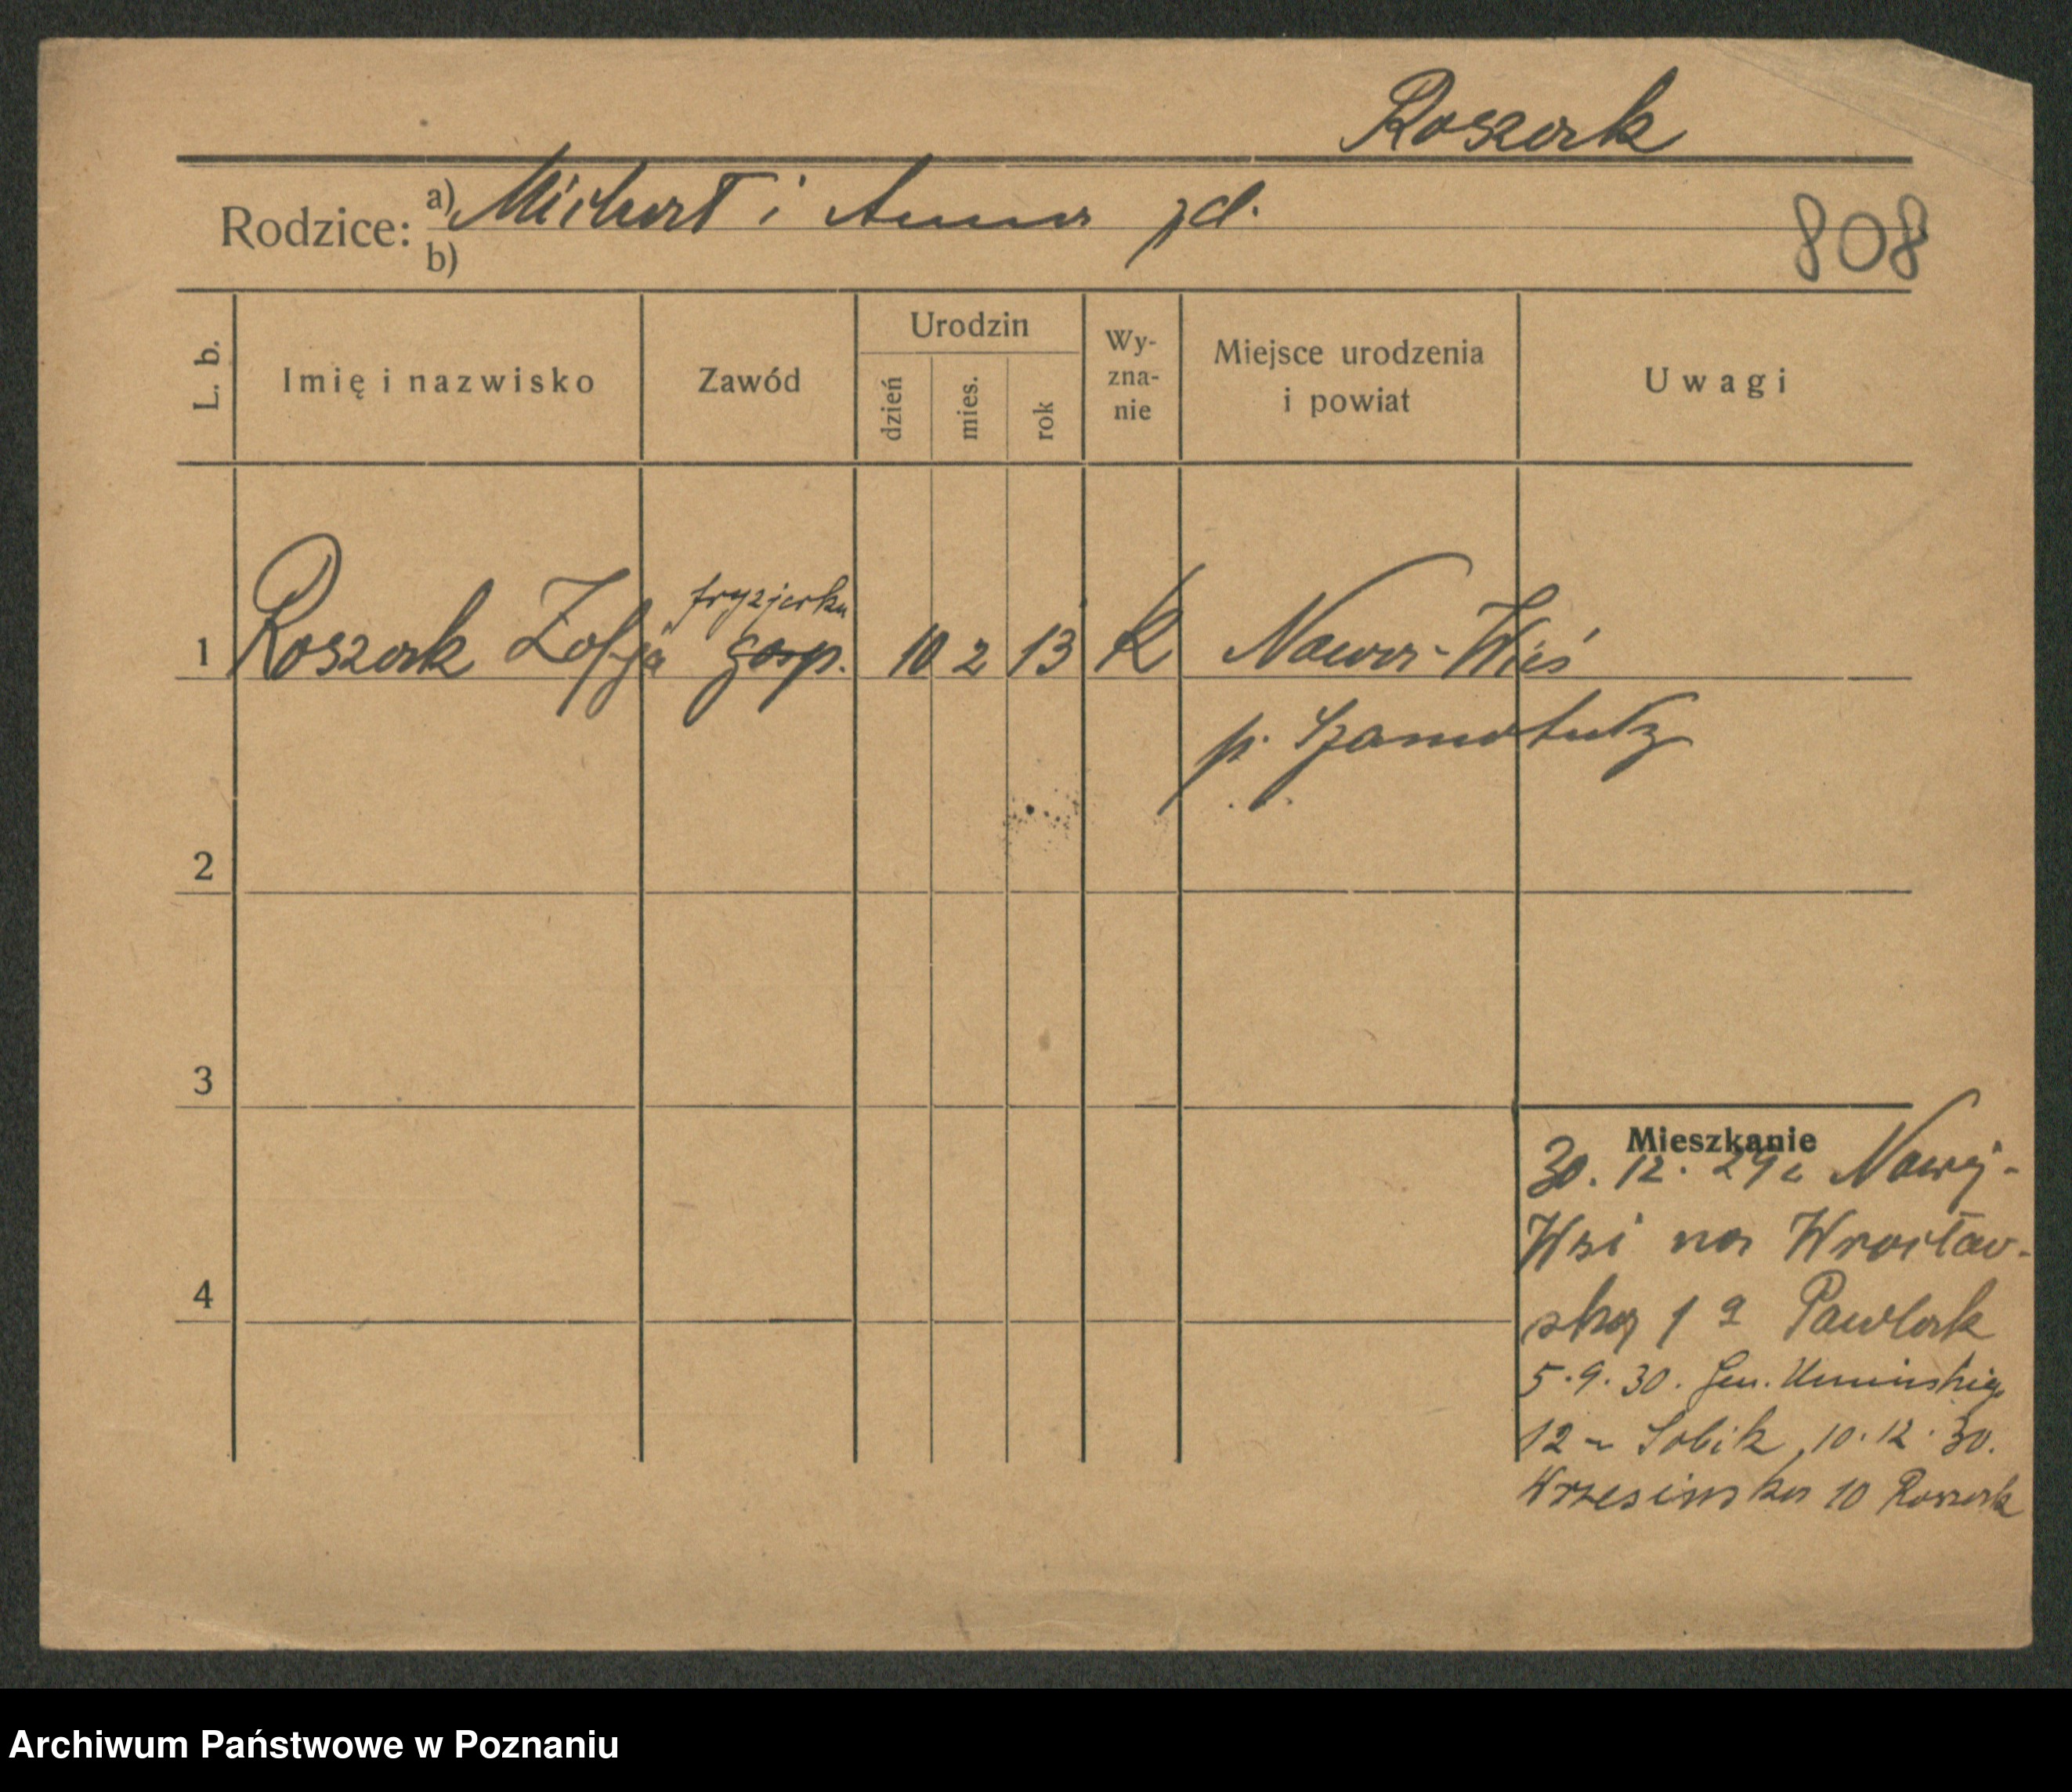 Roszak
Rodzice: a) Michał i Anna
b)
808
L. b.
Imię i nazwisko
Zawód
Urodzin
dzień
mies.
rok
Wy-
zna-
nie
Miejsce urodzenia
i powiat
Uwagi
fryzjerka
1 Roszak Zofja gosp. 10 2 13 K Nowa-Wieś
p. Szamotuły
2
3
4
Mieszkanie
30. 12. 29 z Nowej-
Wsi na Wrocław-
ską 1a Pawlak
5.9.30. Gen. Umińskiego
12 Sobik, 10.12.30.
Wrzesińska 10 Roszak
Archiwum Państwowe w Poznaniu